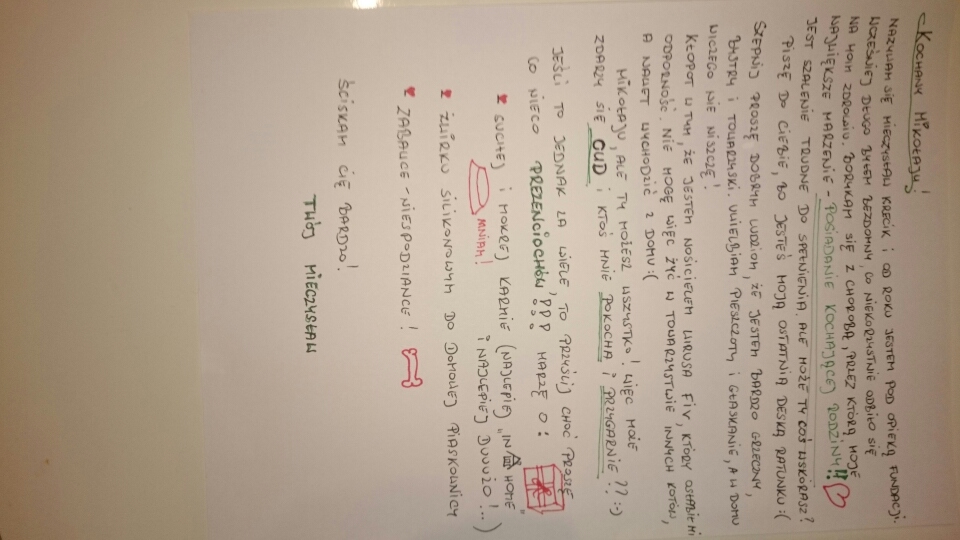 Kochany Mikołaju!
Nazywam się Mieczysław Krecik i od roku jestem pod opieką fundacji.
Wcześniej długo byłem bezdomny, co niekorzystnie odbiło się
na moim zdrowiu. Borykam się z chorobą, przez którą moje
największe marzenie - posiadanie kochającej rodziny!!
jest szalenie trudne do spełnienia. Ale może Ty coś wskórasz?
Piszę do Ciebie, bo jesteś moją ostatnią deską ratunku :(
Szepnij proszę dobrym ludziom, że jestem bardzo grzeczny,
bystry i towarzyski. Uwielbiam pieszczoty i głaskanie, a w domu
niczego nie niszczę!
Kłopot w tym, że jestem nosicielem wirusa FIV, który osłabił mi
odporność. Nie mogę więc żyć w towarzystwie innych kotów,
a nawet wychodzić z domu :(
Mikołaju, ale Ty możesz wszystko! Więc może
zdarzy się CUD i ktoś mnie pokocha i przygarnie?? :-)
Jeśli to jednak za wiele, to przyślij choć proszę
co nieco prezenciochów, ??? marzę o:
suchej i mokrej karmie (najlepiej "in home"
mniam! i najlepiej duuużo!...)
żwirku silikonowym do domowej piaskownicy
zabawce - niespodziance!
Ściskam Cię bardzo!
Twój Mieczysław